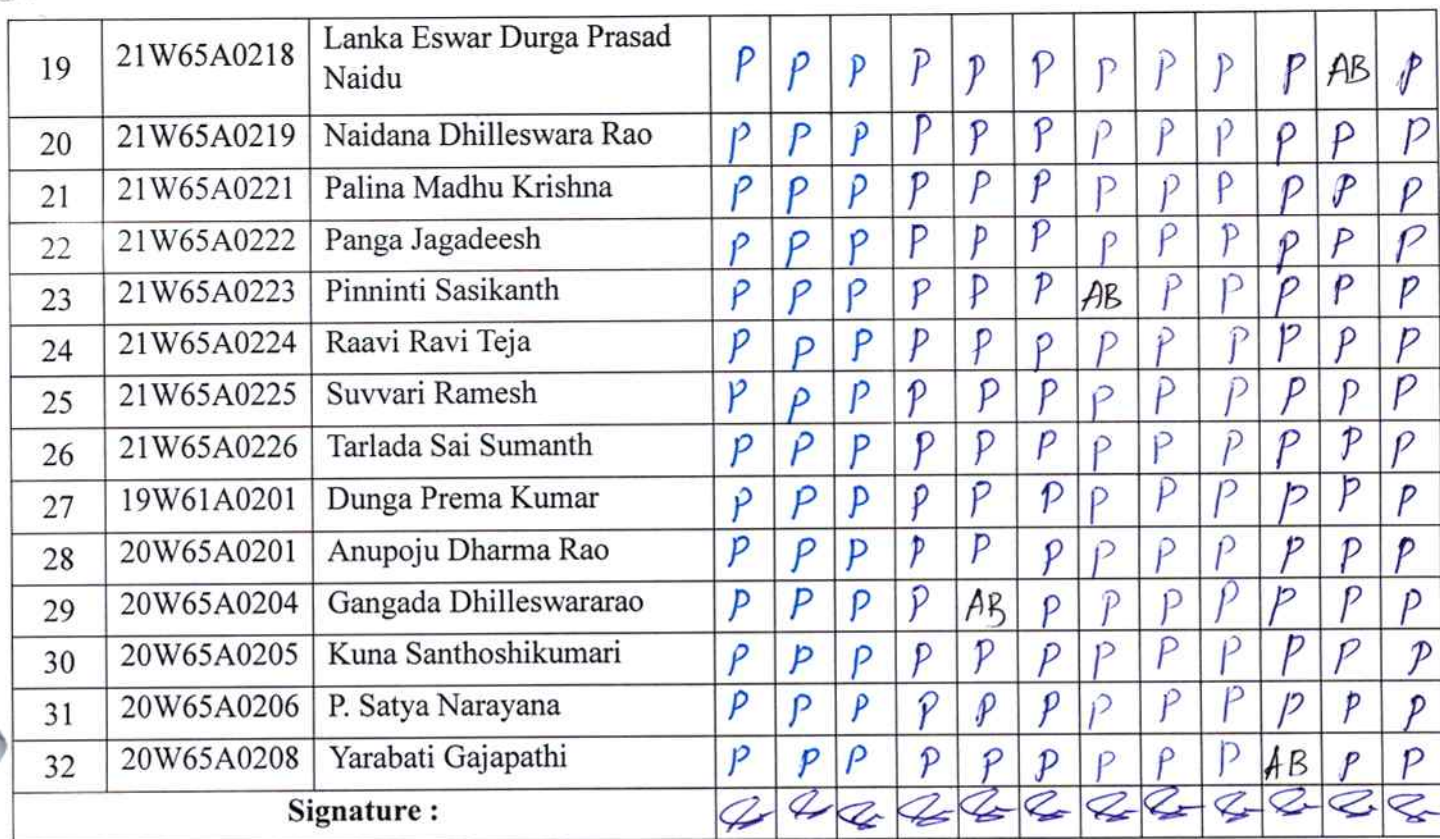 19 21W65A0218 Lanka Eswar Durga Prasad
Naidu P P P P P P P P P P AB P
20 21W65A0219 Naidana Dhilleswara Rao P P P P P P P P P P P P
21 21W65A0221 Palina Madhu Krishna P P P P P P P P P P P P
22 21W65A0222 Panga Jagadeesh P P P P P P P P P P P P
23 21W65A0223 Pinninti Sasikanth P P P P P P AB P P P P P
24 21W65A0224 Raavi Ravi Teja P P P P P P P P P P P P
25 21W65A0225 Suvvari Ramesh P P P P P P P P P P P P
26 21W65A0226 Tarlada Sai Sumanth P P P P P P P P P P P P
27 19W61A0201 Dunga Prema Kumar P P P P P P P P P P P P
28 20W65A0201 Anupoju Dharma Rao P P P P P P P P P P P P
29 20W65A0204 Gangada Dhilleswararao P P P P AB P P P P P P P
30 20W65A0205 Kuna Santhoshikumari P P P P P P P P P P P P
31 20W65A0206 P. Satya Narayana P P P P P P P P P P P P
32 20W65A0208 Yarabati Gajapathi P P P P P P P P P AB P P
Signature :